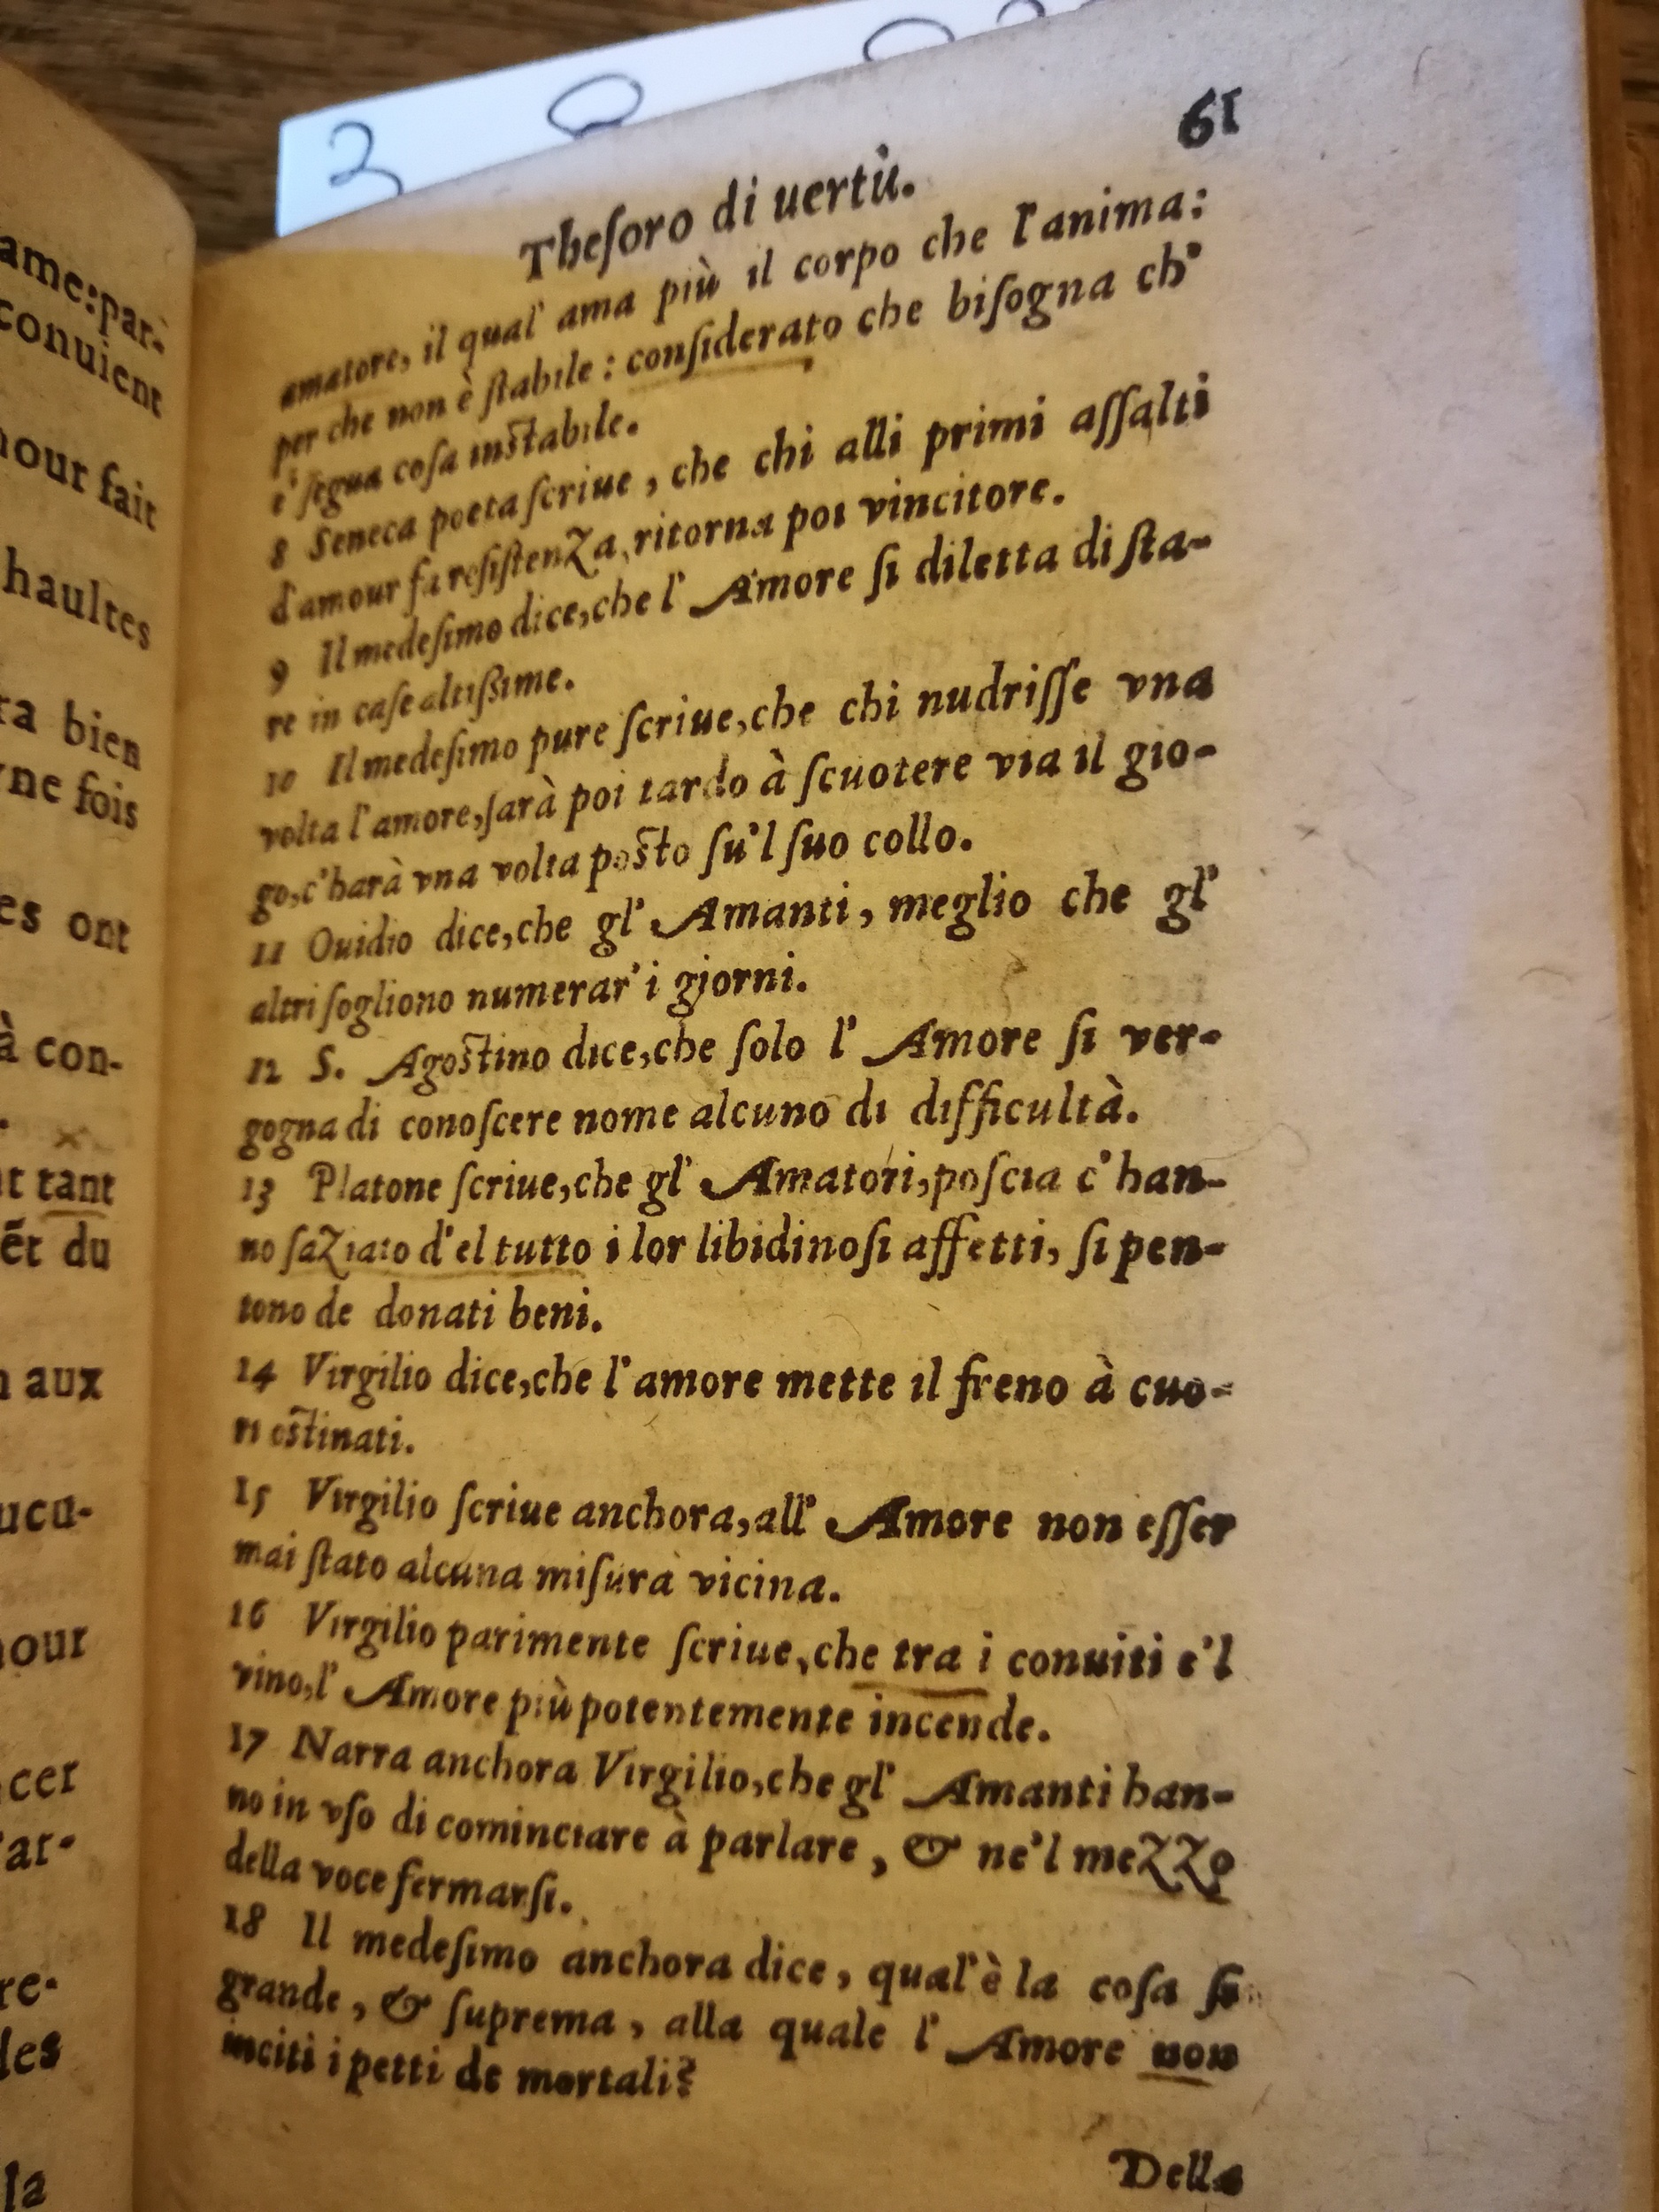 61
Theſoro di uertù.
amatore, il qual' ama più il corpo che l'anima:
per che non è ſtabile : conſiderato che biſogna ch'
e' ſegua coſa inſtabile.
8 Seneca poeta ſcriue, che chi alli primi aſſalti
d'amour fa reſiſtenza, ritorna poi vincitore.
9 Il medeſimo dice, che l' Amore ſi diletta di ſta-
re in caſe altiſſime.
10 Il medeſimo pure ſcriue, che chi nudriſſe vna
volta l'amore, ſarà poi tardo à ſcuotere via il gio-
go, c'harà vna volta poſto ſu'l ſuo collo.
11 Ouidio dice, che gl' Amanti, meglio che gl'
altri ſogliono numerar' i giorni.
12 S. Agoſtino dice, che ſolo l' Amore ſi ver-
gogna di conoſcere nome alcuno di difficultà.
13 Platone ſcriue, che gl' Amatori, poſcia c'han-
no ſaziato d'el tutto i lor libidinoſi affetti, ſi pen-
tono de donati beni.
14 Virgilio dice, che l'amore mette il freno à cuo-
ri oſtinati.
15 Virgilio ſcriue anchora, all' Amore non eſſer
mai ſtato alcuna miſura vicina.
16 Virgilio parimente ſcriue, che tra i conuiti e'l
vino, l' Amore più potentemente incende.
17 Narra anchora Virgilio, che gl' Amanti han-
no in vſo di cominciare à parlare, & ne'l mezzo
della voce fermarſi.
18 Il medeſimo anchora dice, qual'è la coſa ſi
grande, & ſuprema, alla quale l' Amore non
inciti i petti de mortali?
Della
ame: par-
conuient
fait
haultes
bien
fois
ont
à con-
tant
du
aux
cer
la